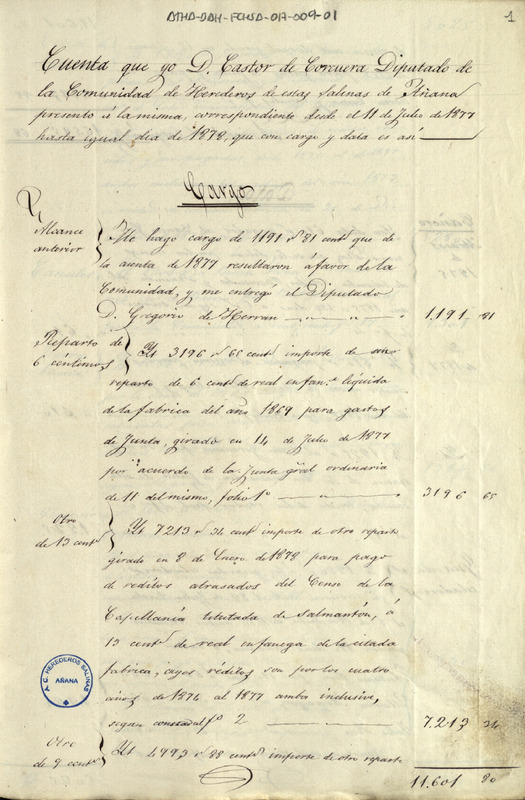 ATHA-DAH-FCHSA-017-009-01
1
Cuenta que yo D. Castor de Corcuera Diputado de
la Comunidad de Herederos de estas Salinas de Añana
presento á la misma, correspondiente desde el 11 de Julio de 1877
hasta igual dia de 1878, que con cargo y data es asi
Cargo
Alcance
anterior
Me hago cargo de 1191 r. 81 cent.s que de
la cuenta de 1877 resultaron á favor de la
Comunidad, y me entregó el Diputado
D. Gregorio de Herran 1.191 81
Reparto de
6 céntimos
Yt 3196 r. 65 cent.s importe de
reparto de 6 cent.s de real en fan.a líquida
de la fabrica del año 1869 para gastos
de Junta, girado en 14 de Julio de 1877
por acuerdo de la Junta gral ordinaria
de 11 del mismo, folio 1º 3196 65
Otro
de 13 cent.s
Yt 7213 r. 34 cent.s importe de otro reparto
girado en 8 de Enero de 1878 para pago
de reditos atrasados del Censo de la
Capellanía titutada de Salmantón, á
13 cent.s de real en fanega de la citada
fabrica, cuyos réditos son por los cuatro
años de 1874 al 1877 ambos inclusive,
segun consta al fº 2 7.213 34
A. C. HEREDEROS SALINAS
AÑANA
Otro
de 9 cent.s
Yt 4993 r. 88 cent.s importe de otro reparto
11.601 80